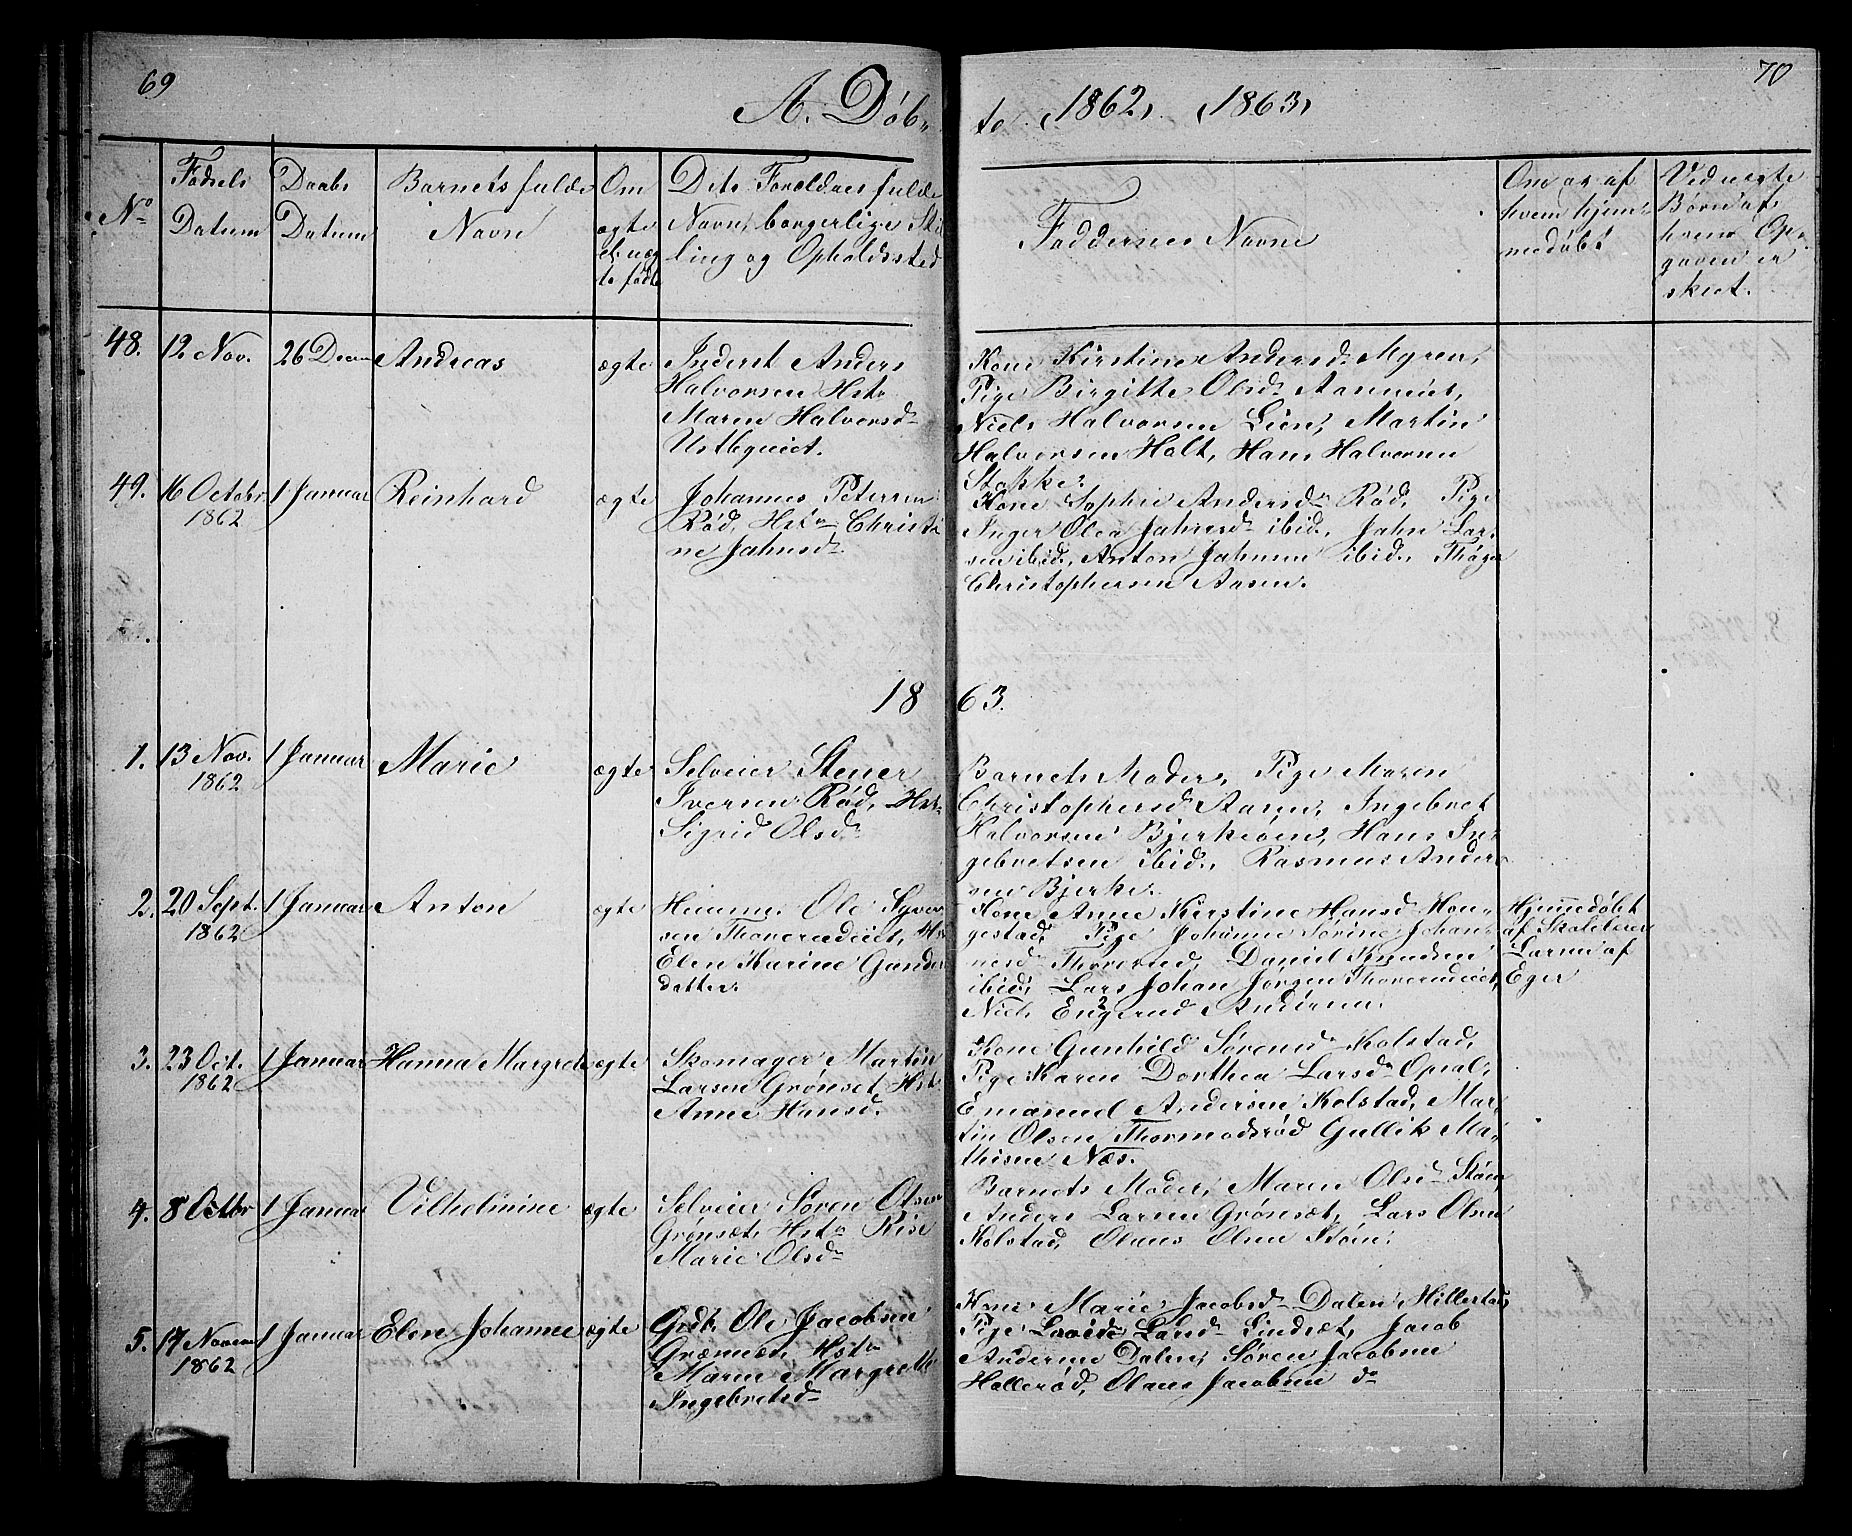 69
A. Døb-
te 1862, 1863,
70
No
Fødsels
Datum
Daabs
Datum
Barnets fulde
Navn
Om
ægte
el. uæg
te født
Dets Forældres fulde
Navn, borgerlige Stil
ling og Opholdssted
Faddernes Navne
Om og af
hvem hjem-
medøbt
Ved uægte
Børn af
hvem Op-
gaven er
skeet.
48.
12 Nov.
26 Decm
Andreas
ægte
Inderst Anders
Halvorsen Hstr
Maren Halvorsd
Kone Kirstine Andersd. Myren,
Pige Birgitte Olsd
Niels Halvorsen Lien, Martin
Halvorsen Holt, Hans Halvorsen
Stokke.
49.
16 Octobr
1862
1 Januar
Reinhard
ægte
Johannes Petersen
Rød, Hstr Christi
ne Jahnsd
Kone Sophie Andersd Rød, Pige
Inger Olea Jahnsd ibid, Jahn Lar-
sen ibid, Anton Jahnsen ibid,
Christophersen Aasen.
1863.
1.
13 Nov.
1862
1 Januar
Marie
ægte
Selveier Stener
Iversen Rød, Hstr
Sigrid Olsd
Barnets Moder, Pige Maren
Christophersd Aasen, Ingebret
Halvorsen Bjerkeøen, Hans In-
gebretsen ibid, Rasmus Ander
sen Bjerke.
2.
20 Sept.
1862
1 Januar
Anton
ægte
Ole Syver
sen
Elen Karine Gunder
datter.
Kone Anne Kirstine Hansd Hon-
gestad, Pige Johanne Sørine Johan-
nesd Daniel Knudsen
ibid, Lars Johan Jørgen
Niels Engerud Andersen.
Hjemmedøbt
af Skolelærer
Larsen af
Eger
3.
23 Oct.
1862
1 Januar
Hanna Margrete
ægte
Skomager Martin
Larsen Grønset, Hstr
Anne Hansd.
Kone Gunhild Sørensd Kolstad,
Pige Karen Dorthea Larsd Opsal,
Emanuel Andersen Kolstad, Mar-
tin Olsen Thormodsrød Gullik Ma-
thisen Næs.
4.
8 Octbr
1 Januar
Vilhelmine
ægte
Selveier Søren Olsen
Grønsæt, Hstr Rise
Marie Olsd
Barnets Moder, Maren Olsd Støen
Anders Larsen Grønsæt, Lars Olsen
Kolstad, Olaus Olsen Støen.
5.
17 Novem
1862
1 Januar
Elen Johanne
ægte
Grdb. Ole Jacobsen
Hstr
Maren Margrethe
Ingebretsd
Kone Marie Jacobsd Dalen Hillestad,
Pige Larsd Lindsæt, Jacob
Andersen Dalen, Søren Jacobsen
Hallerød, Olaus Jacobsen do